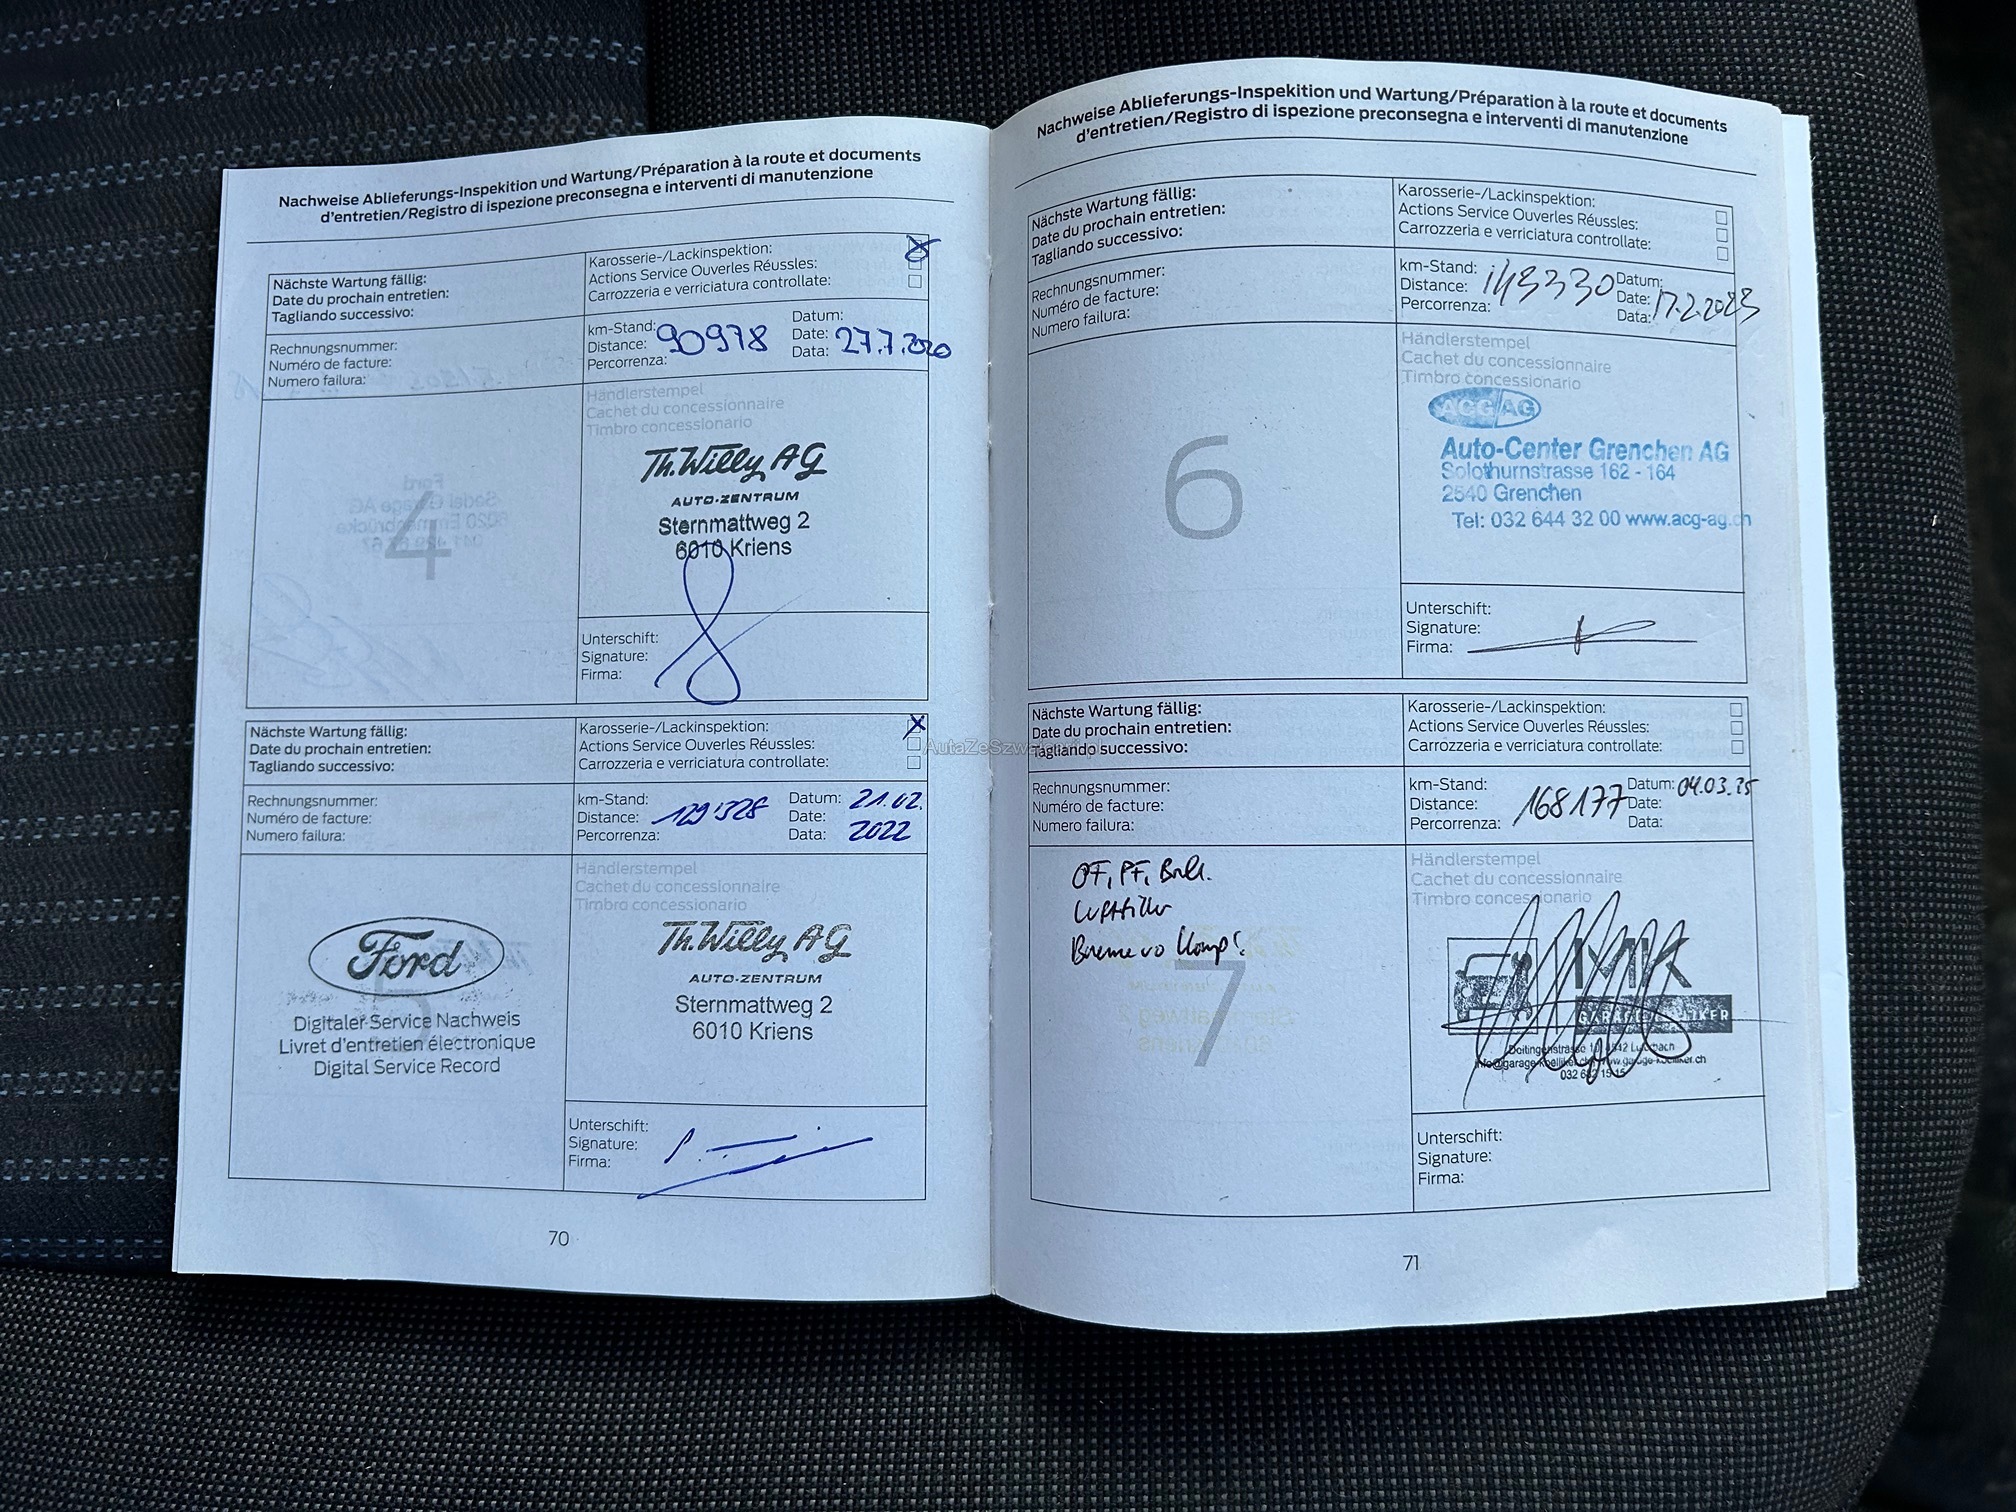 Nachweise Ablieferungs-Inspekition und Wartung/Préparation à la route et documents
d'entretien/Registro di ispezione preconsegna e interventi di manutenzione
Nächste Wartung fällig:
Date du prochain entretien:
Tagliando successivo:
Karosserie-/Lackinspektion:
Actions Service Ouverles Réussles:
Carrozzeria e verriciatura controllate:
Rechnungsnummer:
Numéro de facture:
Numero failura:
km-Stand:
Distance: 90978
Percorrenza:
Datum:
Date: 27.7.2020
Data:
4
Händlerstempel
Cachet du concessionnaire
Timbro concessionario
Th. Willy AG
AUTO-ZENTRUM
Sternmattweg 2
6010 Kriens
Unterschift:
Signature:
Firma:
Nächste Wartung fällig:
Date du prochain entretien:
Tagliando successivo:
Karosserie-/Lackinspektion:
Actions Service Ouverles Réussles:
Carrozzeria e verriciatura controllate:
Rechnungsnummer:
Numéro de facture:
Numero failura:
km-Stand:
Distance: 129'328
Percorrenza:
Datum: 21.02.
Date:
Data: 2022
Ford
Digitaler Service Nachweis
Livret d'entretien électronique
Digital Service Record
Händlerstempel
Cachet du concessionnaire
Timbro concessionario
Th. Willy AG
AUTO-ZENTRUM
Sternmattweg 2
6010 Kriens
Unterschift:
Signature:
Firma:
70
Nachweise Ablieferungs-Inspekition und Wartung/Préparation à la route et documents
d'entretien/Registro di ispezione preconsegna e interventi di manutenzione
Nächste Wartung fällig:
Date du prochain entretien:
Tagliando successivo:
Karosserie-/Lackinspektion:
Actions Service Ouverles Réussles:
Carrozzeria e verriciatura controllate:
Rechnungsnummer:
Numéro de facture:
Numero failura:
km-Stand:
Distance:
Percorrenza:
Datum:
Date:
Data: 17.2.2023
6
Händlerstempel
Cachet du concessionnaire
Timbro concessionario
ACG AG
Auto-Center Grenchen AG
Solothurnstrasse 162 - 164
2540 Grenchen
Tel: 032 644 32 00 www.acg-ag.ch
Unterschift:
Signature:
Firma:
Nächste Wartung fällig:
Date du prochain entretien:
Tagliando successivo:
Karosserie-/Lackinspektion:
Actions Service Ouverles Réussles:
Carrozzeria e verriciatura controllate:
Rechnungsnummer:
Numéro de facture:
Numero failura:
km-Stand:
Distance: 168177
Percorrenza:
Datum: 04.03.25
Date:
Data:
OF, PF,
Luftfilter
7
Händlerstempel
Cachet du concessionnaire
Timbro concessionario
Unterschift:
Signature:
Firma:
71